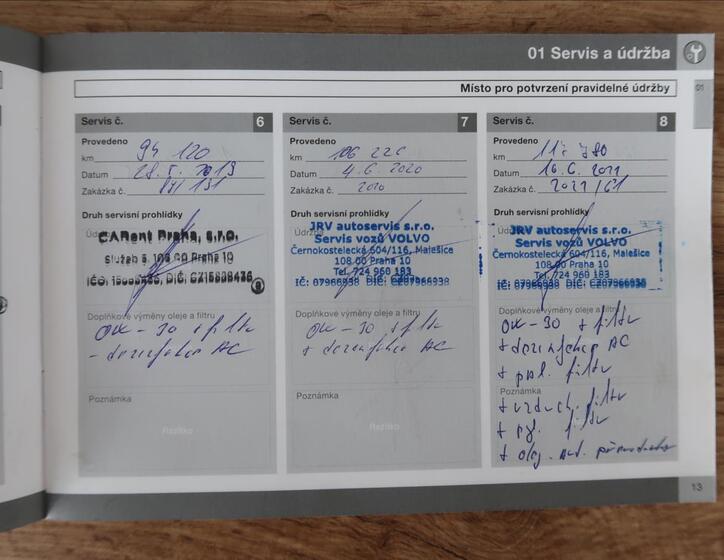 01 Servis a údržba
Místo pro potvrzení pravidelné údržby
01
Servis č. 6
Provedeno
km 94 120
Datum 28. 5. 2019
Zakázka č.
Druh servisní prohlídky
CARent Praha, s.r.o.
Služeb 5, 108 00 Praha 10
Doplňkové výměny oleje a filtru
0W-30 + filtr
- dezinfekce AC
Poznámka
Razítko
Servis č. 7
Provedeno
km 106 220
Datum 4. 6. 2020
Zakázka č. 2020
Druh servisní prohlídky
Údržba
JRV autoservis s.r.o.
Servis vozů VOLVO
Černokostelecká 604/116, Malešice
108 00 Praha 10
Tel. 724 960 183
IČ: 07966938 DIČ: CZ07966938
Doplňkové výměny oleje a filtru
0W-30 + filtr
+ dezinfekce AC
Poznámka
Razítko
Servis č. 8
Provedeno
km
Datum 16. 6. 2021
Zakázka č. 2021/61
Druh servisní prohlídky
JRV autoservis s.r.o.
Servis vozů VOLVO
Černokostelecká 604/116, Malešice
108 00 Praha 10
Tel. 724 960 183
IČ: 07966938 DIČ: CZ07966938
Doplňkové výměny oleje a filtru
0W-30 + filtr
+ dezinfekce AC
+ pal. filtr
Poznámka
+ vzduch. filtr
+ pyl. filtr
+ olej. aut. převodovky
13